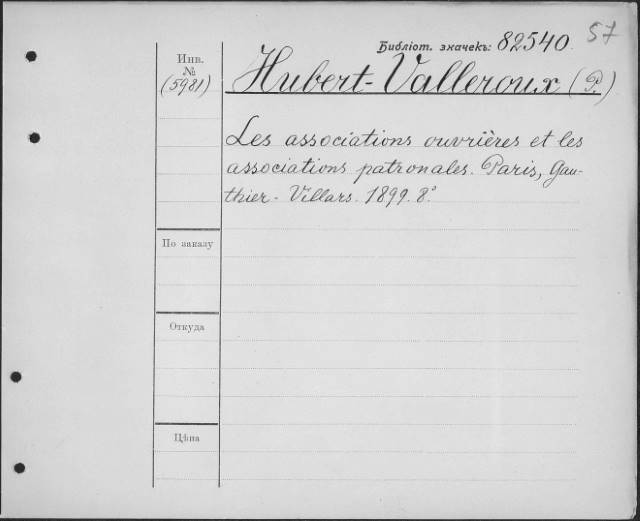 57
Библіот. значекъ: 82540
Инв.
№
(5981)
Hubert-Valleroux (P.)
Les associations ouvrières et les
associations patronales. Paris, Gau-
thier-Villars. 1899. 8°
По заказу
Откуда
Цѣна